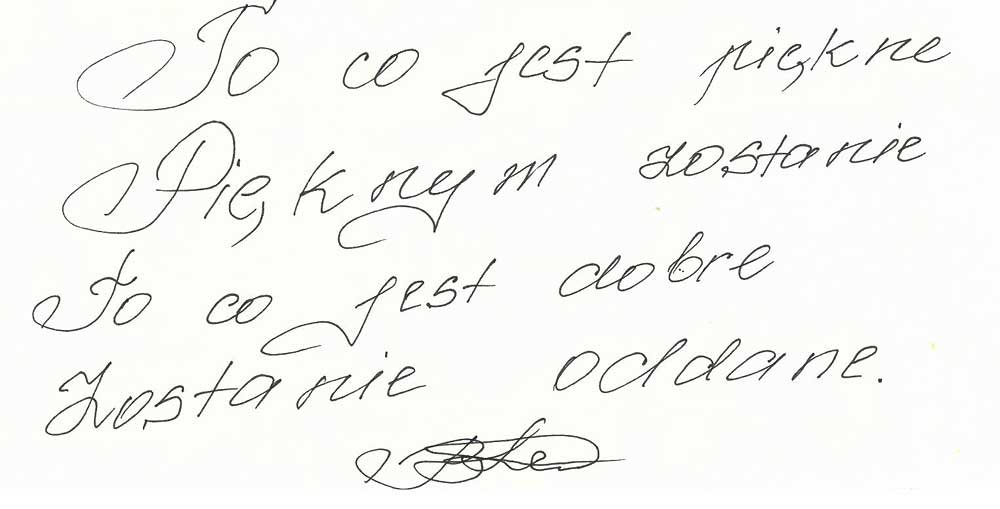 To co jest piękne
Pięknym zostanie
To co jest dobre
Zostanie oddane.